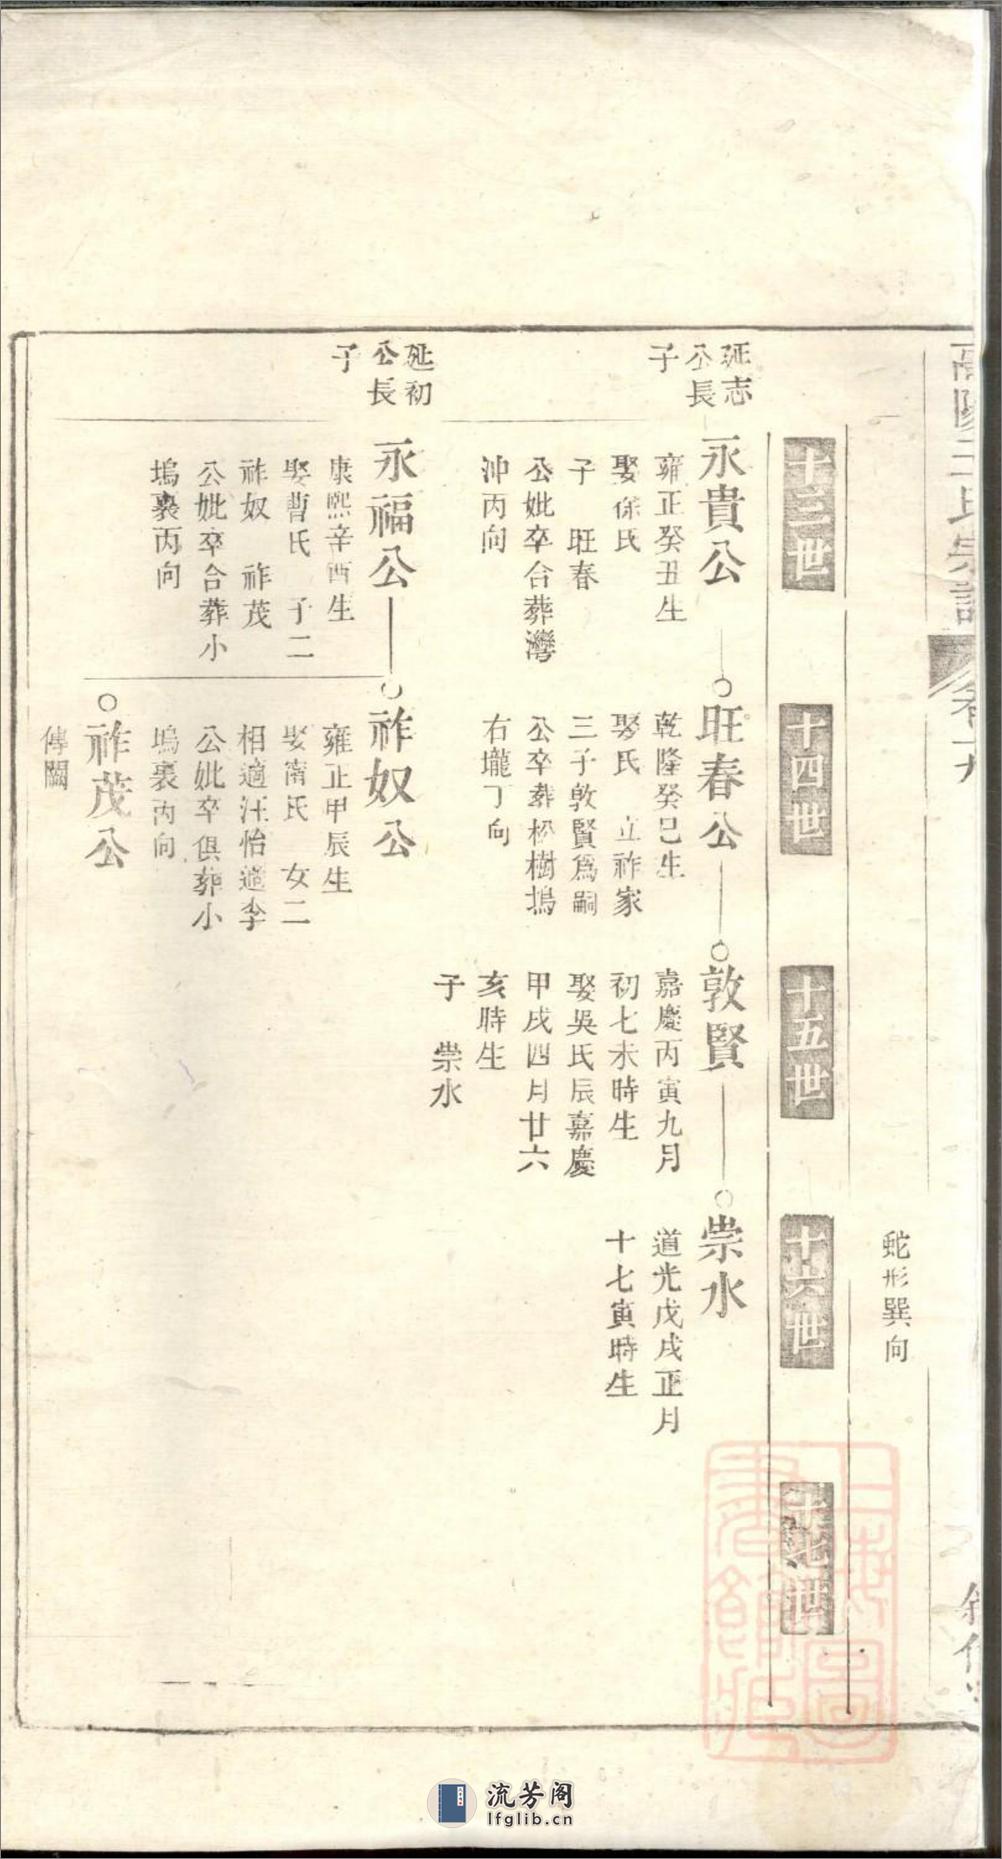 蛇形巽向
十三世
十四世
十五世
十六世
十七世
延志
公長
子
永貴公
雍正癸丑生
娶徐氏
子 旺春
公妣卒合葬灣
沖丙向
旺春公
乾隆癸巳生
娶氏 立祚家
三子敦賢爲嗣
公卒葬松樹塢
右壠丁向
敦賢
嘉慶丙寅九月
初七未時生
娶吳氏辰嘉慶
甲戌四月廿六
亥時生
子 崇水
崇水
道光戊戌正月
十七寅時生
延初
公長
子
永福公
康熙辛酉生
娶曹氏 子二
祚奴 祚茂
公妣卒合葬小
塢裏丙向
祚奴公
雍正甲辰生
娶南氏 女二
相適汪怡適李
公妣卒俱葬小
塢裏丙向
祚茂公
傳闕
流芳阁
lfglib.cn